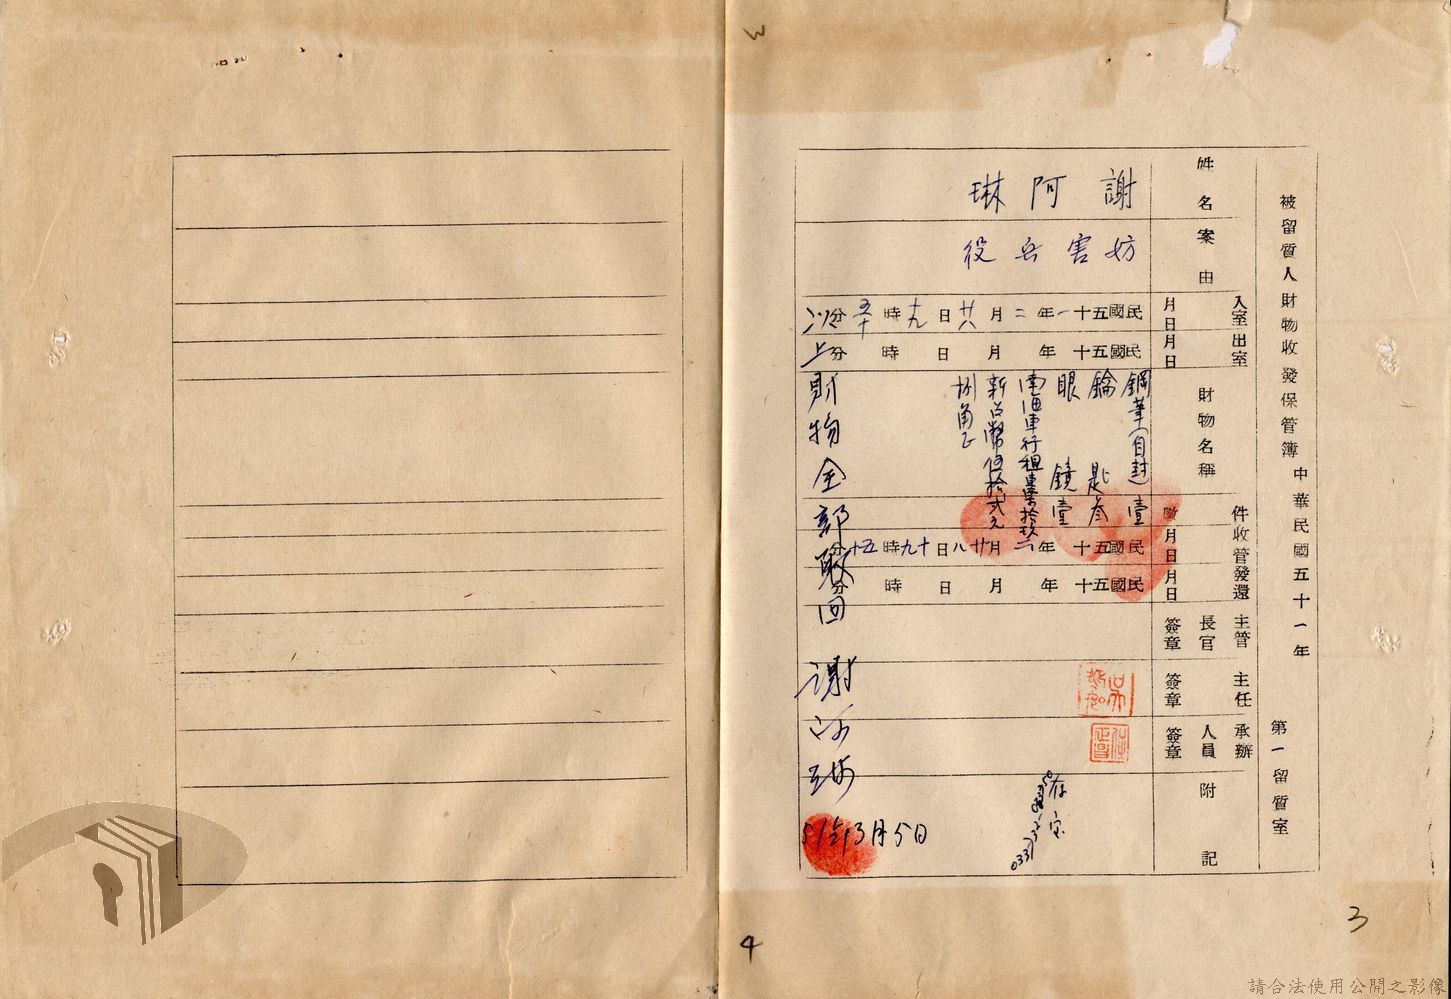 被留質人財物收發保管簿
中華民國五十一年
第一留質室
姓名
謝阿琳
案由
妨害兵役
入室 月日
民國五十一年二月廿八日十九時五十分
出室 月日
民國五十年月日時分
財物名稱
鋼筆（自封）
鑰匙
眼鏡
南迴車行租車
新台幣伍拾貳元
捌角正
件數
壹
叁
壹
收管 月日
民國五十年二月廿八日十九時五十分
發還 月日
民國五十年月日時分
主管長官簽章
主任簽章
承辦人員簽章
附記
存室
以上財物全部取回
謝阿琳
51年3月5日
3
4
請合法使用公開之影像